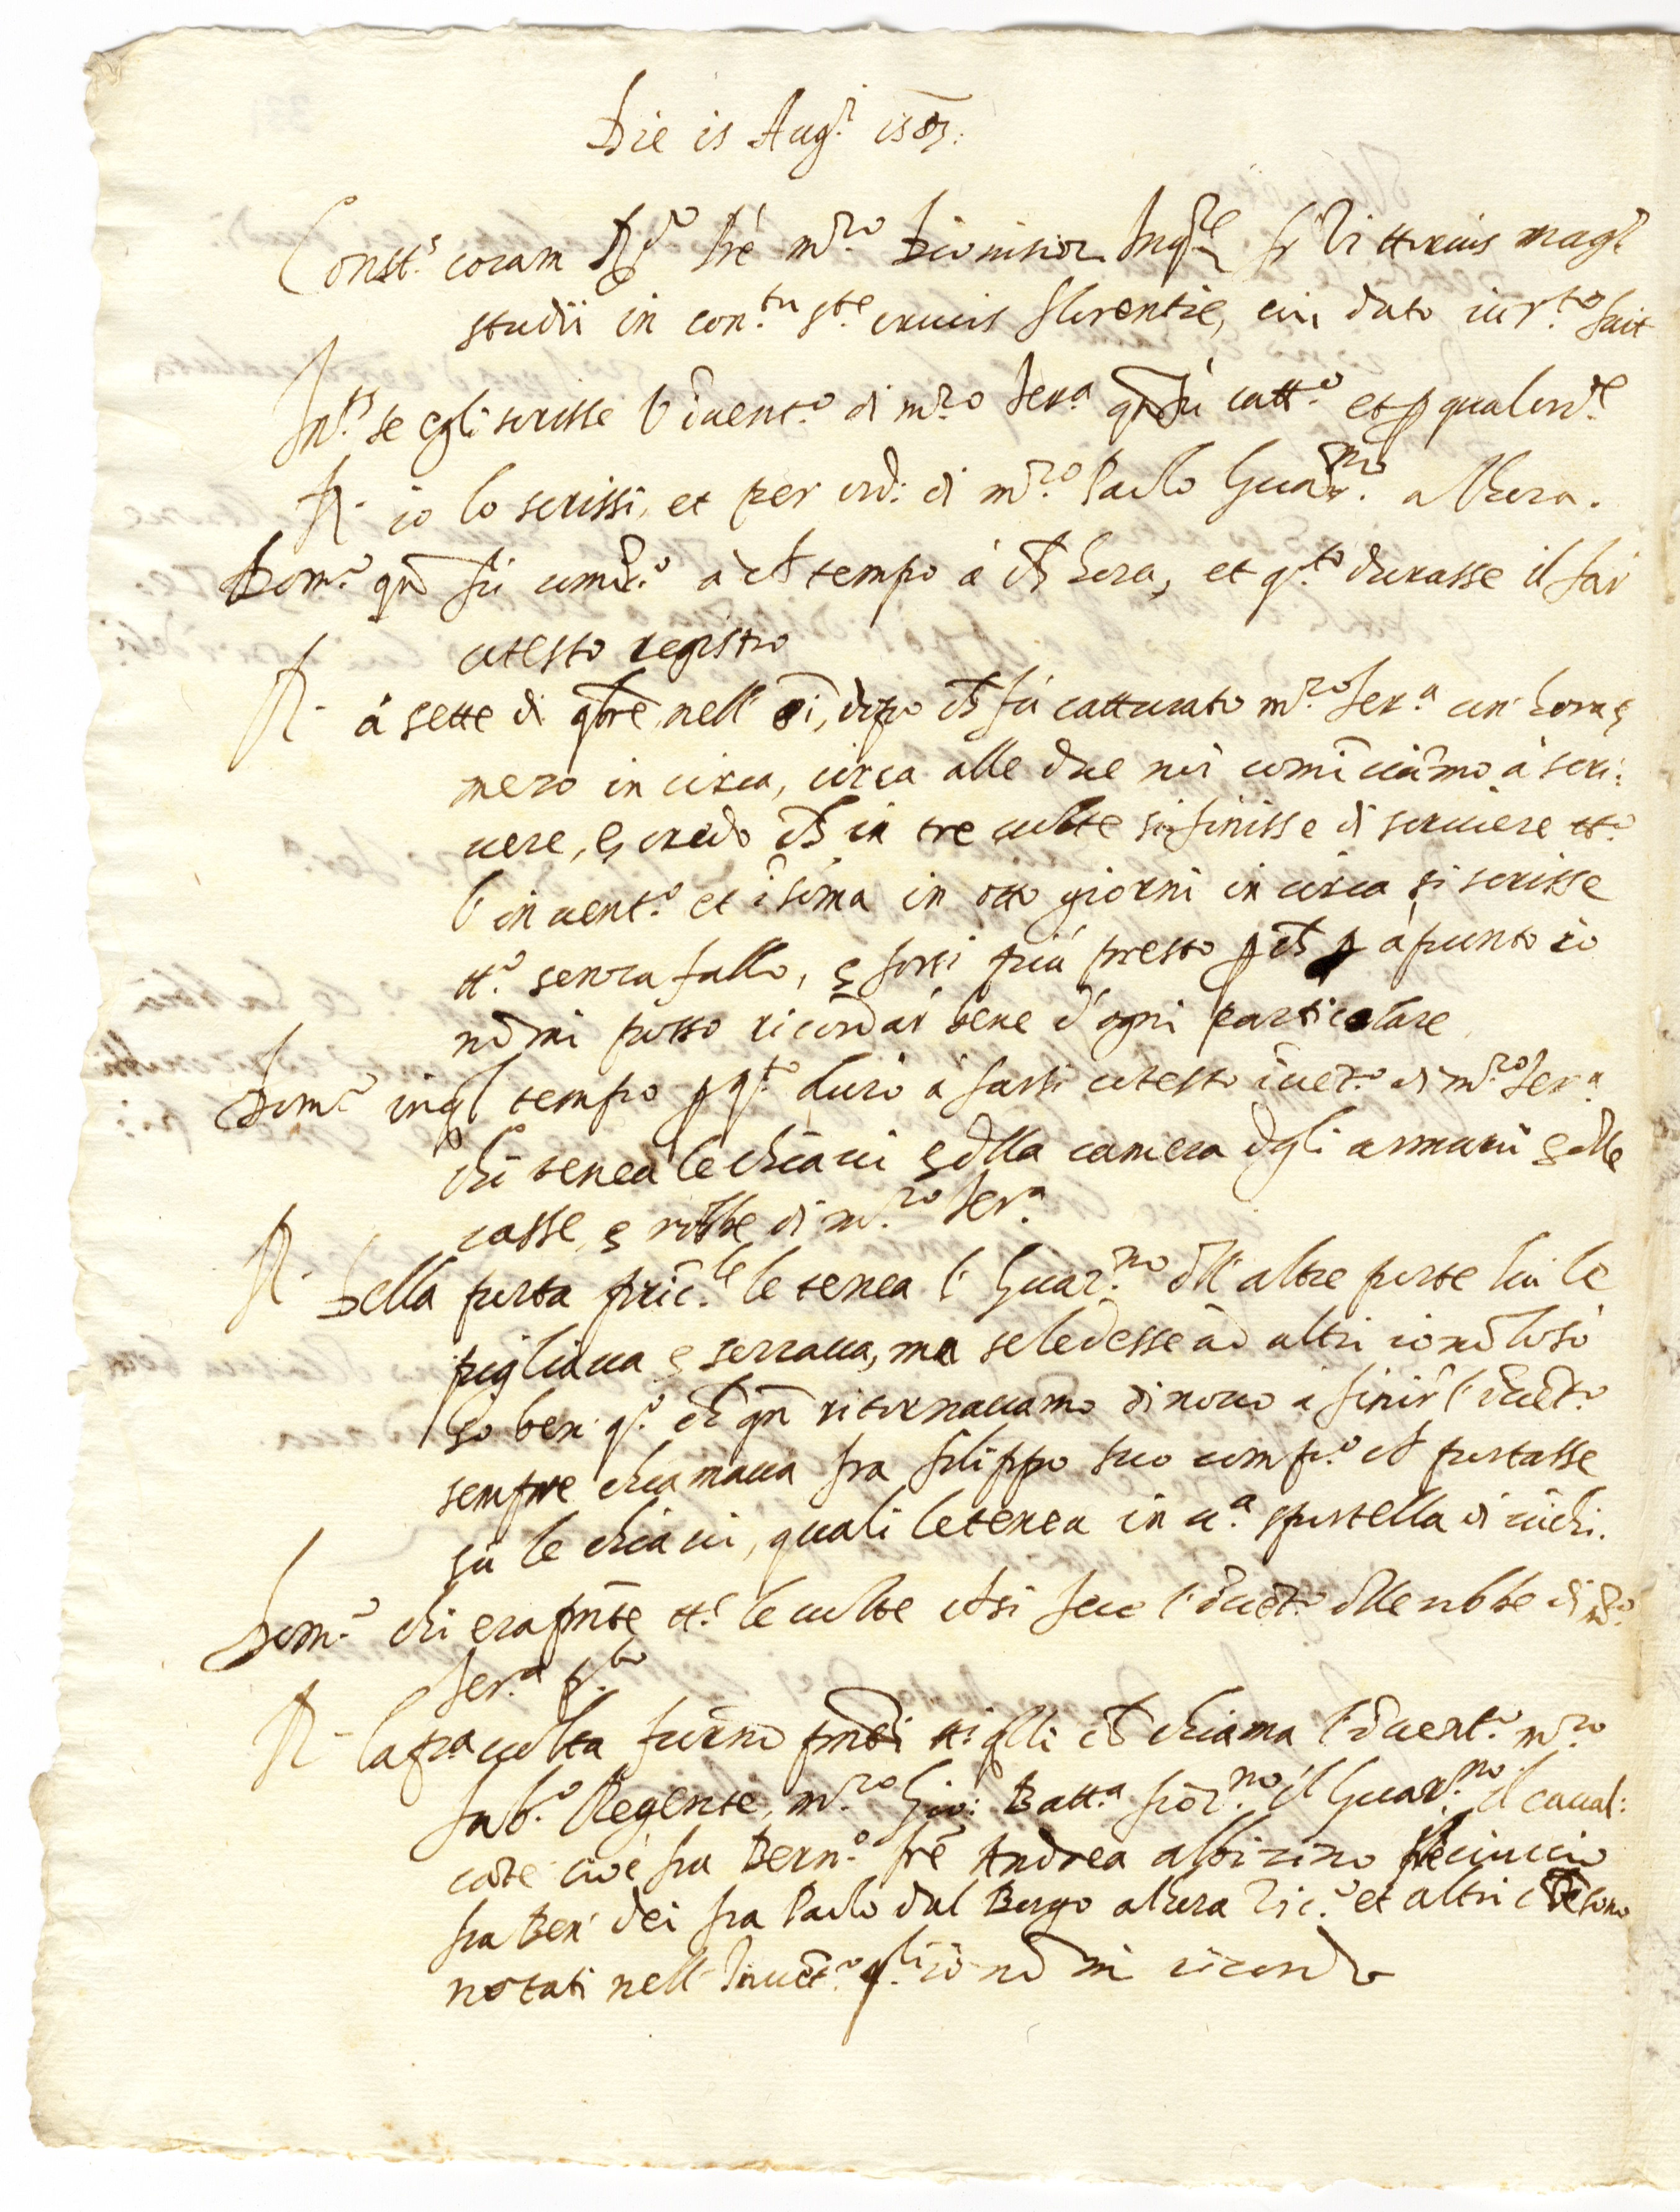 Die is Aug.ⁱ
Const.ˢ coram R.ᵈᵒ Prē m̃.ʳᵒ Dionisio Inq.ʳᵉ fr̃ Vittorius mag.ʳ
studii in con.ᵗᵘ s.ᵗᵉ crucis florentie, cui dato iur.ᵗᵒ fuit
Int.ˢ se egli scrisse l'ĩuent.º di m.ʳᵒ Ser.ª qñ fù catt.º et p qual ord.ᵉ
R. io lo scrissi, et per ord: di m.ʳᵒ Paulo Guar.ⁿᵒ alhora.
Dom.º qñ fù com.º à ch̃ tempo à ch̃ hora, et q.ᵗᵒ durasse il far
cotesto registro
R. à sette di 9bre nell' dopo ch̃ fù catturato m.ʳᵒ Ser.ª un' hora e
mezo in circa, circa alle due noi comĩciamo à scri:
uere, e credo ch̃ in tre uolte si finisse di scriuere tt.º
l'inuent.º et ĩ soma in otto giorni in circa si scrisse
tt.º senza fallo, e forsi più presto p ch̃ àpunto io
nõ mi posso ricordar bene d'ogni particolare
Dom.º in ql tempo p q.ᵗᵒ durò à farsi cotesto ĩuet.º di m.ʳᵒ Ser.ª
chi tenea le chiaui e dlla camera dgli armarii e dlle
casse, e robbe di m.ʳᵒ Ser.ª
R. Della porta prĩc.ˡᵉ le tenea l' Guar.ⁿᵒ dll' altre porte lui le
pigliaua e serraua, ma se le desse ad altri io nõ lo sò
so ben' q.º ch̃ qñ ritornauamo di nouo à finir l'ĩuet.º
sempre chiamaua fra filippo suo comp.º ch̃ portasse
sù le chiaui, quali le tenea in u.ª sportella di
Dom.º chi era pñte tt.ᵉ le uolte ch̃ si fece l'ĩuet.º dlle robbe di m.ʳᵒ
Ser.ª
R. la p.ª uolta furno pñti tti qlli ch̃ chiama l'ĩuent.º m.ʳᵒ
Fab.º Regente, m.ʳᵒ Gio: Batt.ª il Guar.ⁿᵒ il caual:
cioè fra Bern.º frẽ Andrea albizino
fra Ben' dei fra Paulo dal Borgo alhora Vic.º et altri ch̃ sono
notati nell' Inuet.º q.ˡⁱ io nõ mi ricordo